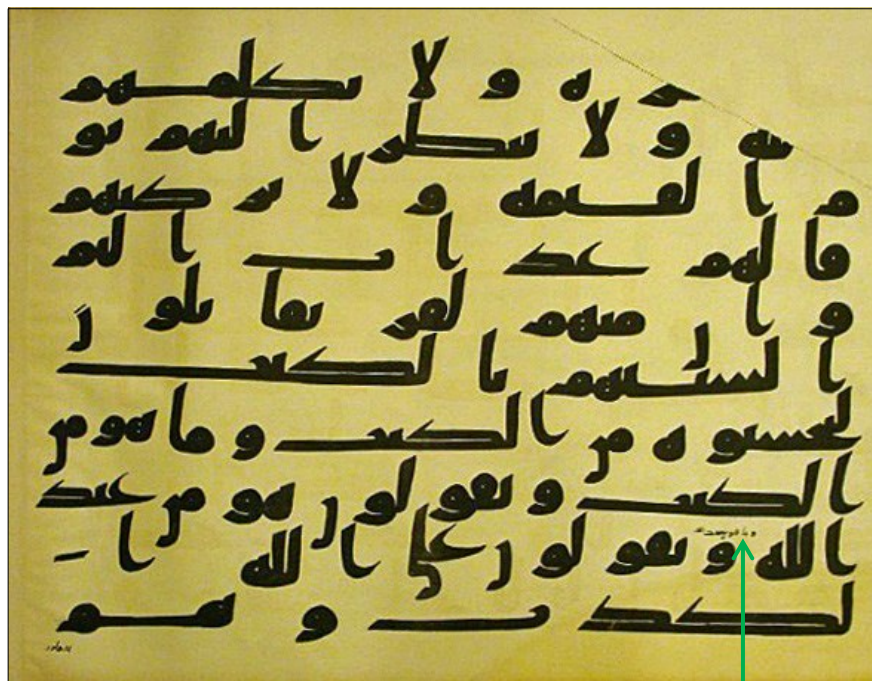 ولا يكلمهم
الله ولا ينظر اليهم يو
م القيمة ولا يزكيهم
ولهم عذاب اليم
وان منهم لفريقا يلون
السنتهم بالكتب
لتحسبوه من الكتب وما هو من
الكتب ويقولون هو من عند
الله ويقولون على الله ا
لكذب وهم